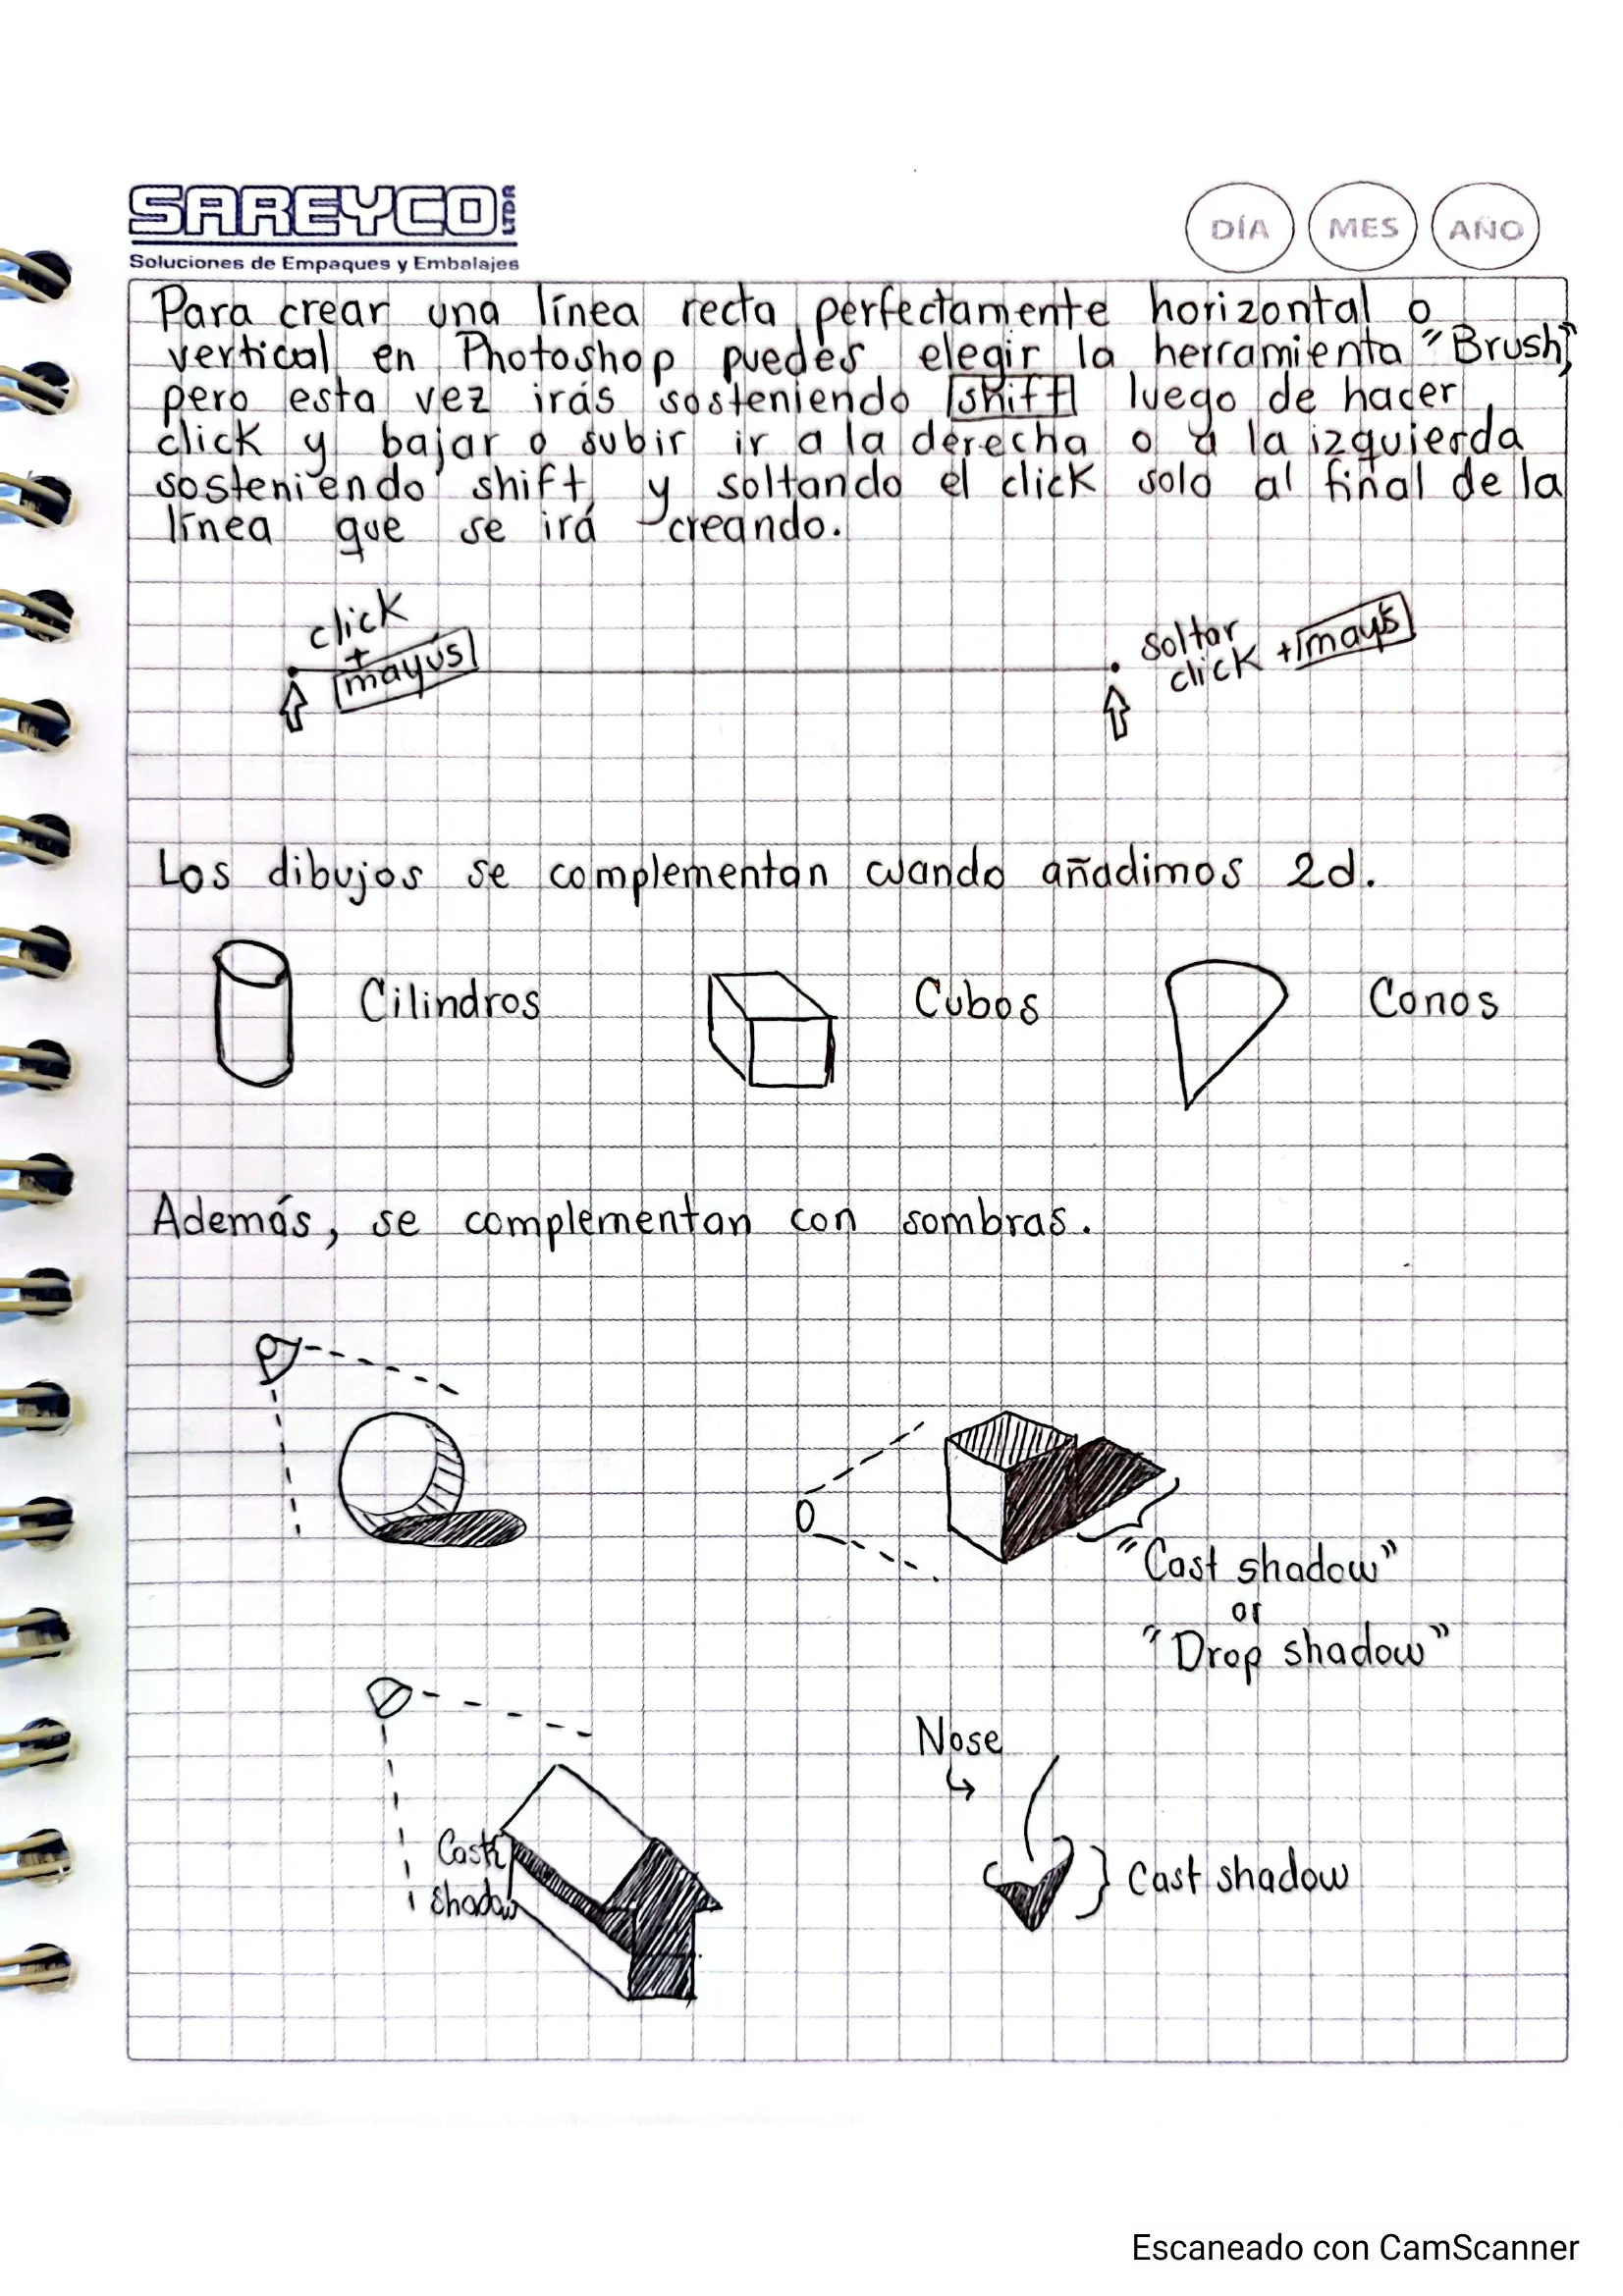 SAREYCO LTDA
Soluciones de Empaques y Embalajes
DÍA MES AÑO
Para crear una línea recta perfectamente horizontal o
vertical en Photoshop puedes elegir la herramienta "Brush",
pero esta vez irás sosteniendo shift luego de hacer
click y bajar o subir ir a la derecha o a la izquierda
sosteniendo shift y soltando el click solo al final de la
línea que se irá creando.
click
+
mayús
soltar
click + mays
Los dibujos se complementan cuando añadimos 2d.
Cilindros
Cubos
Conos
Además, se complementan con sombras.
"Cast shadow"
or
"Drop shadow"
Nose
Cast
shadow
Cast shadow
Escaneado con CamScanner